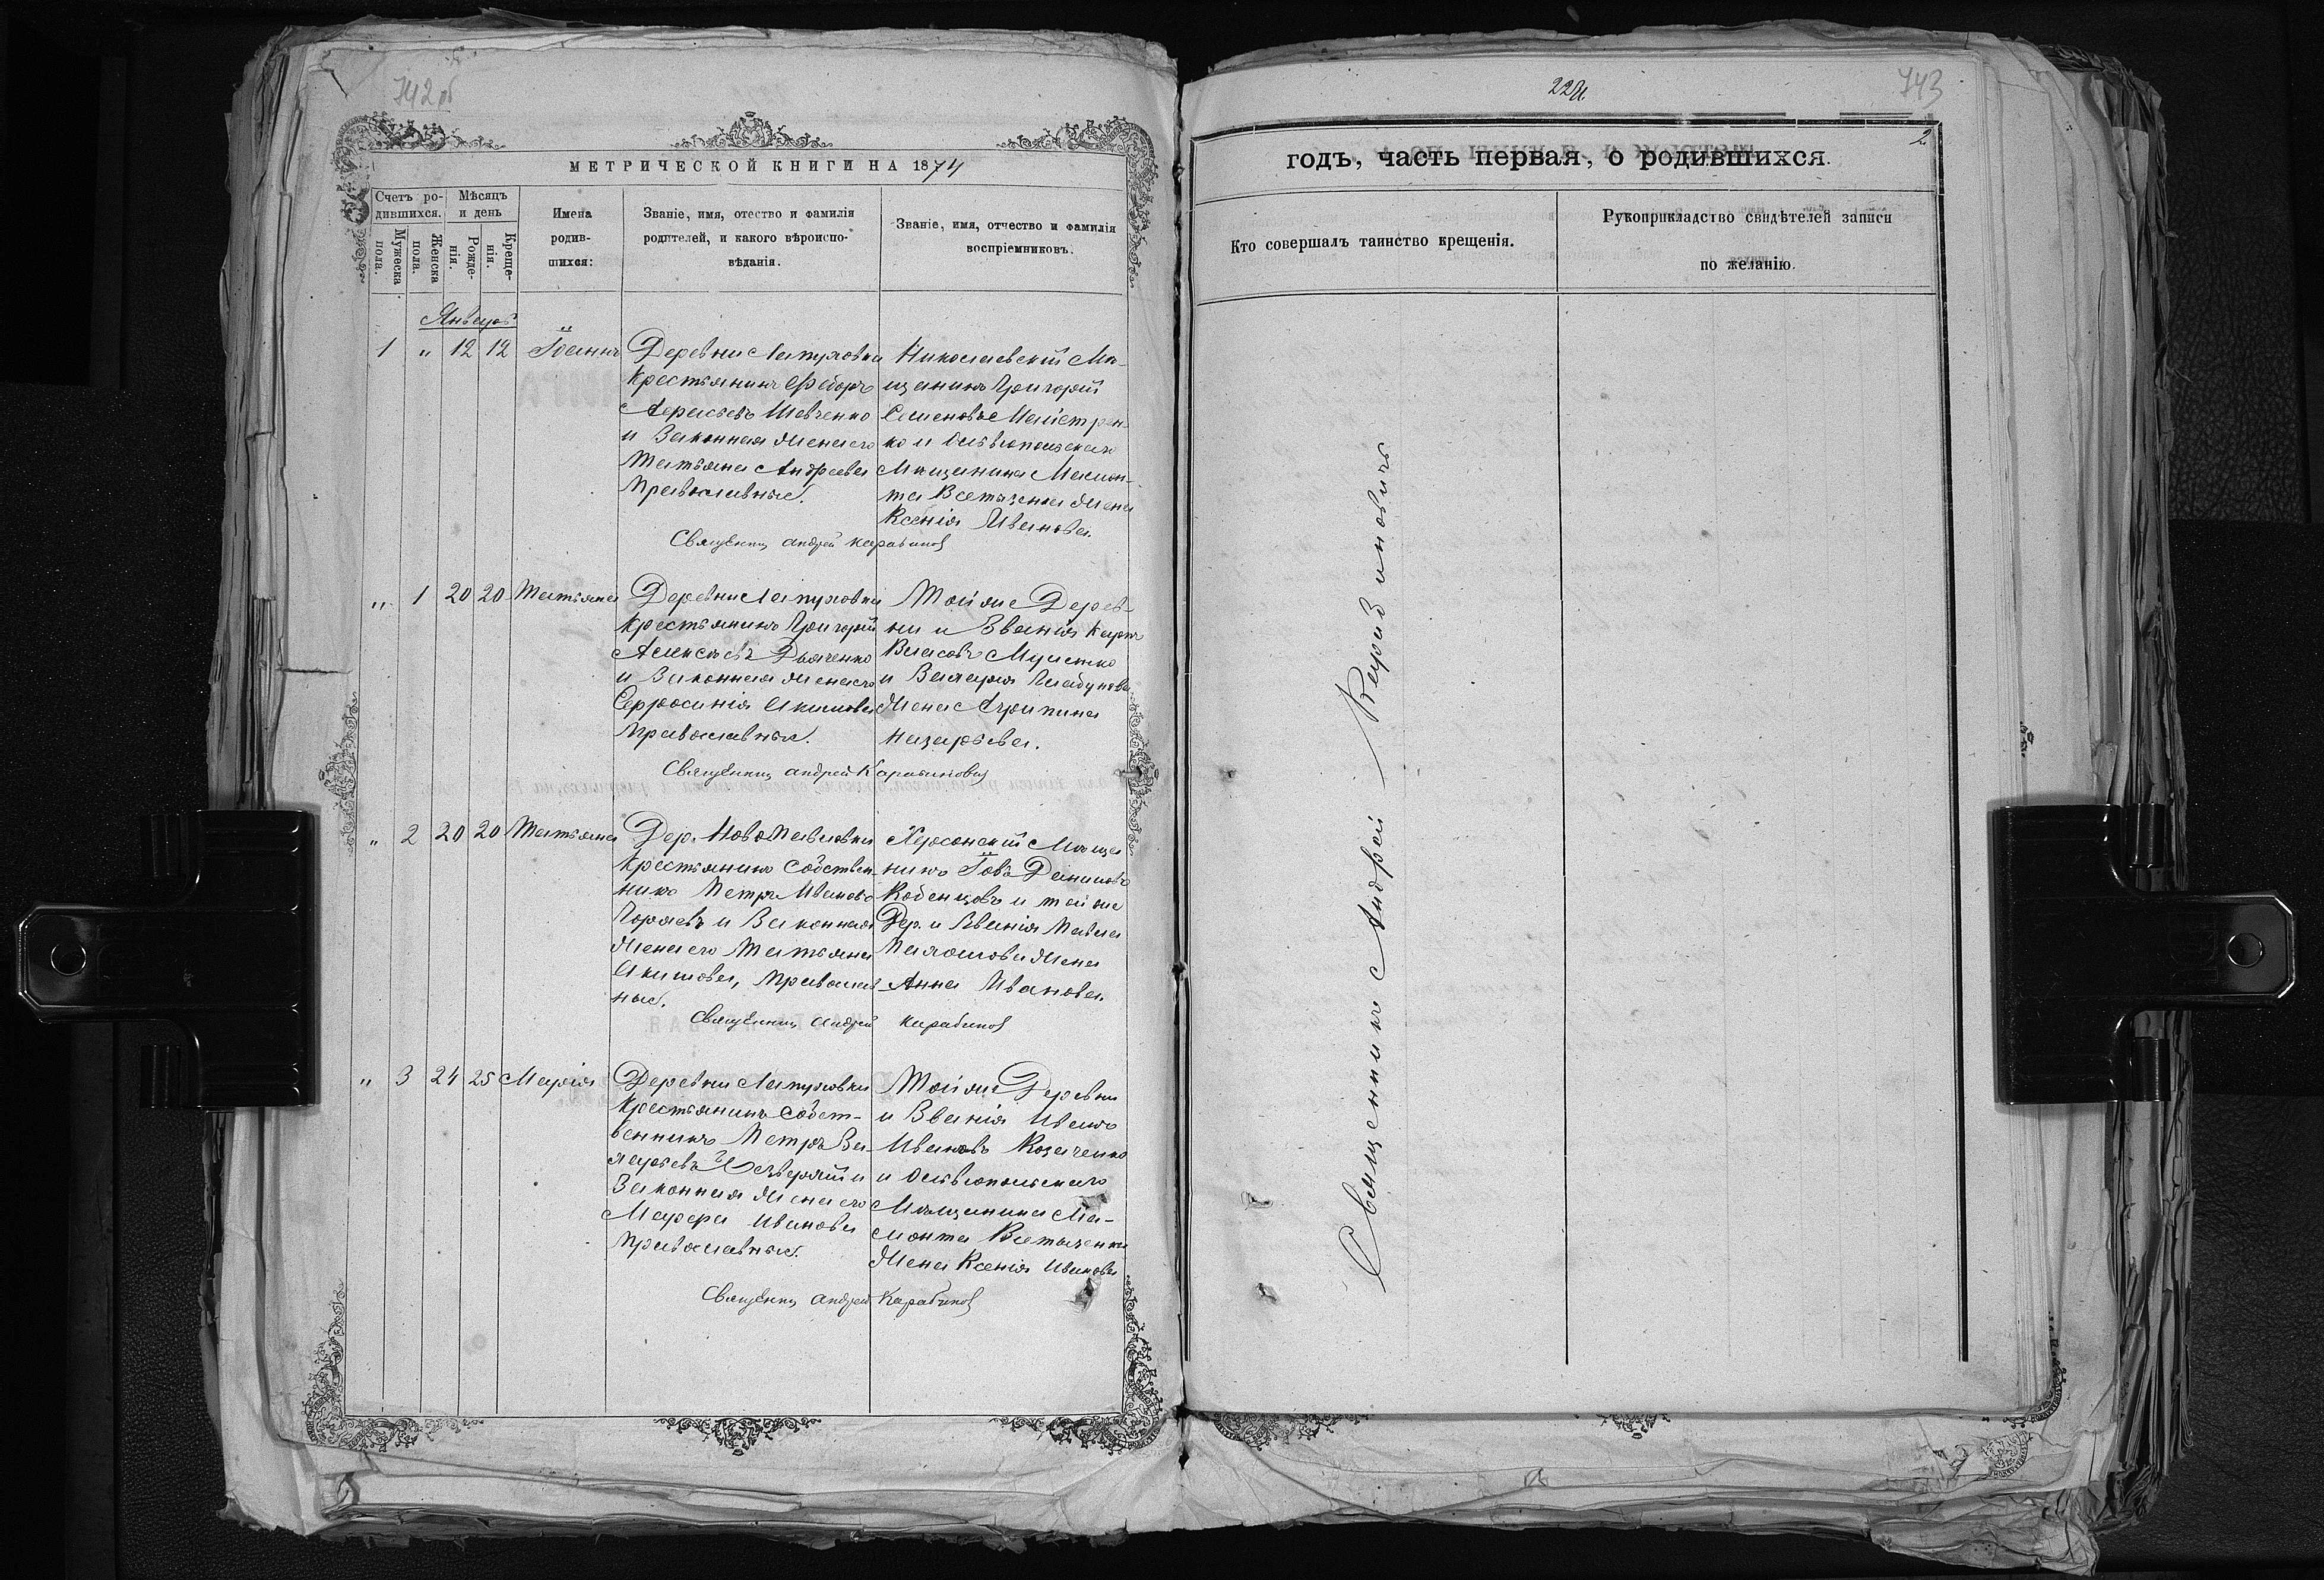 742об
МЕТРИЧЕСКОЙ КНИГИ НА 1874
Счетъ ро-
дившихся.
Мѣсяцъ
и день
Мужеска
пола.
Женска
пола.
Рожде-
нія.
Креще-
нія.
Имена
родив-
шихся:
Званіе, имя, отество и фамилія
родителей, и какого вѣроиспо-
вѣданія.
Званіе, имя, отчество и фамилія
воспріемниковъ.
Январь
1 „ 12 12 Іоаннъ
Деревни Лапуховки
Крестьянинъ Ѳеодоръ
Шевченко
и Законная Жена его
Татьяна Андреева
Православные.
Николаевскій Мѣ-
щанинъ Григорій
Семеновъ Майстрен-
ко и Ольвіопольскаго
Мѣщанина Мамон-
та Жена
Ксенія Иванова.
Священникъ Андрей Карабинов
„ 1 20 20 Татьяна
Деревни Лапуховки
Крестьянинъ Григорій
Алексѣевъ Дьяченко
и Законная Жена его
Евфросинія Акимова
Православные.
Той же Дерев-
ни и Званія Карпъ
Власовъ
и Захарія
Жена Агрипина
Назарьева.
Священникъ Андрей Карабинович
„ 2 20 20 Татьяна
Дер. Новопавловки
Крестьянинъ Собствен-
никъ Петръ Ивановъ
и Законная
Жена его Татьяна
Акимова, Православ-
ные.
Херсонскій Мѣща
нинъ Іовъ Даниловъ
Кобенцовъ и той же
Дер. и Званія Павла
Жена
Анна Иванова.
Священникъ Андрей Карабинов
„ 3 24 25 Марія
Деревни Лапуховки
Крестьянинъ Собст-
венникъ Петръ За-
харьевъ и
Законная Жена его
Марфа Иванова
Православные.
Той же Деревни
и Званія Иванъ
Ивановъ Козаченко
и Ольвіопольскаго
Мѣщанина Ма-
монта
Жена Ксенія Иванова
Священникъ Андрей Карабинов
22и
743
2
годъ, часть первая, о родившихся.
Кто совершалъ таинство крещенія.
Рукоприкладство свидѣтелей записи
по желанію.
Священникъ Андрей Карабиновичъ